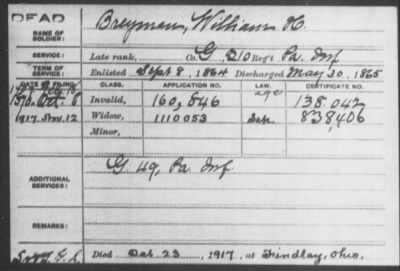 DEAD
NAME OF SOLDIER: Breyman, William H.
SERVICE: Late rank, Co. G, 210 Reg't Pa. Inf
TERM OF SERVICE: Enlisted Sept 8, 1864 Discharged May 30, 1865
DATE OF FILING. CLASS. APPLICATION NO. LAW. CERTIFICATE NO.
Invalid, 160,846 138.042
1917. Nov. 12 Widow, 1110053 838,406
Minor,
ADDITIONAL SERVICES: G 49, Pa. Inf
REMARKS:
Died Oct 23, 1917, at Findlay, Ohio.